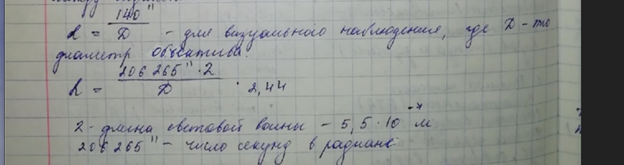 140"
α = D - для визуального наблюдения, где D - это
диаметр объектива.
206 265" · λ
α = D · 2,44
λ - длина световой волны - 5,5 · 10⁻⁷ м
206 265" - число секунд в радиане